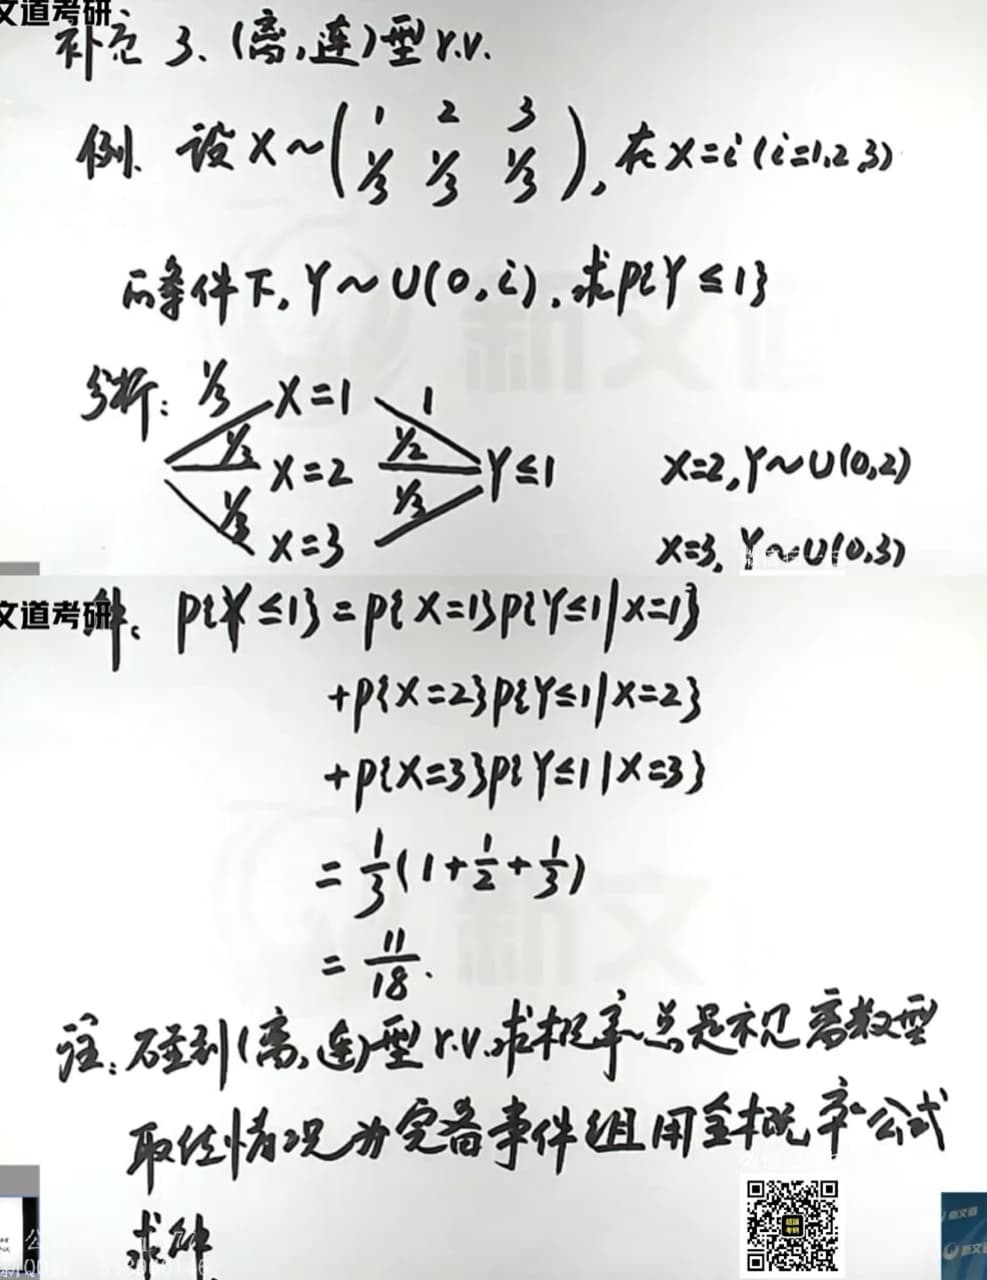 文道考研
补充 3、(离,连)型 r.v.
例. 设 X ~ ( 1 2 3
1/3 1/3 1/3 ), 在 X=i (i=1,2,3)
的条件下, Y~U(0,i), 求P{Y≤1}
分析: 1/3 X=1 1
1/3 X=2 1/2 Y≤1 X=2, Y~U(0,2)
1/3 X=3 1/3 X=3, Y~U(0,3)
文道考研
解、 P{Y≤1} = P{X=1}P{Y≤1|X=1}
+P{X=2}P{Y≤1|X=2}
+P{X=3}P{Y≤1|X=3}
= 1/3 (1+1/2+1/3)
= 11/18.
注: 碰到(离,连)型 r.v.求概率总是视离散型
取值情况为完备事件组用全概率公式
求解
新文道
新文道